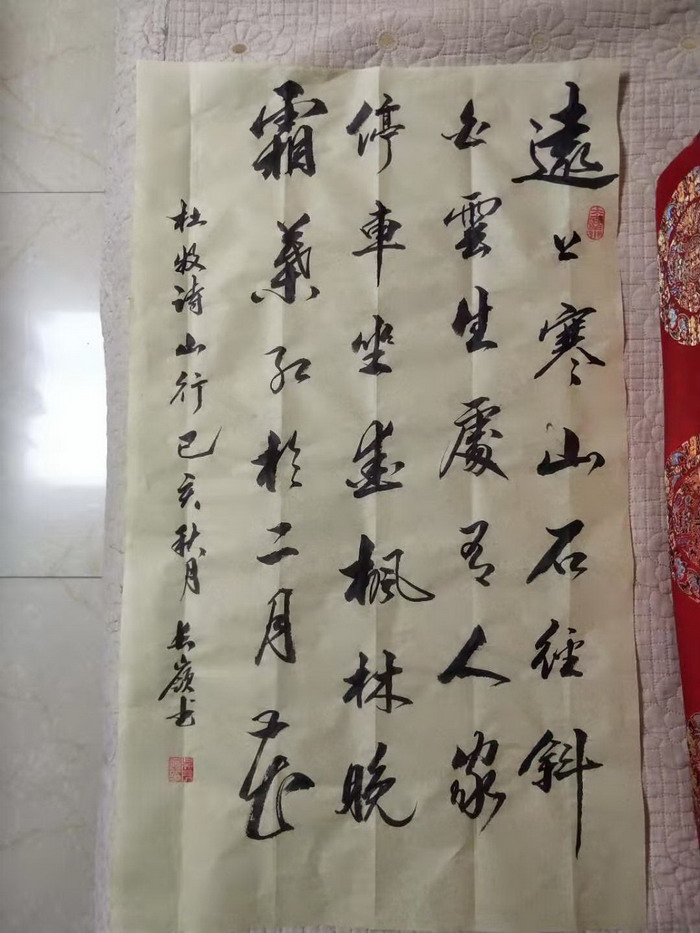 遠上寒山石徑斜
白雲生處有人家
停車坐愛楓林晚
霜葉紅於二月花
杜牧詩山行己亥秋月長嶺书